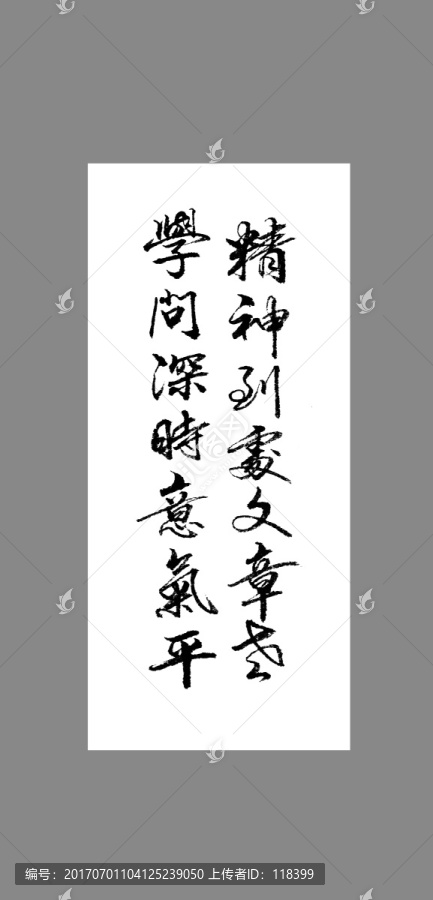 精神到處文章老
學問深時意氣平
编号：20170701104125239050 上传者ID：118399